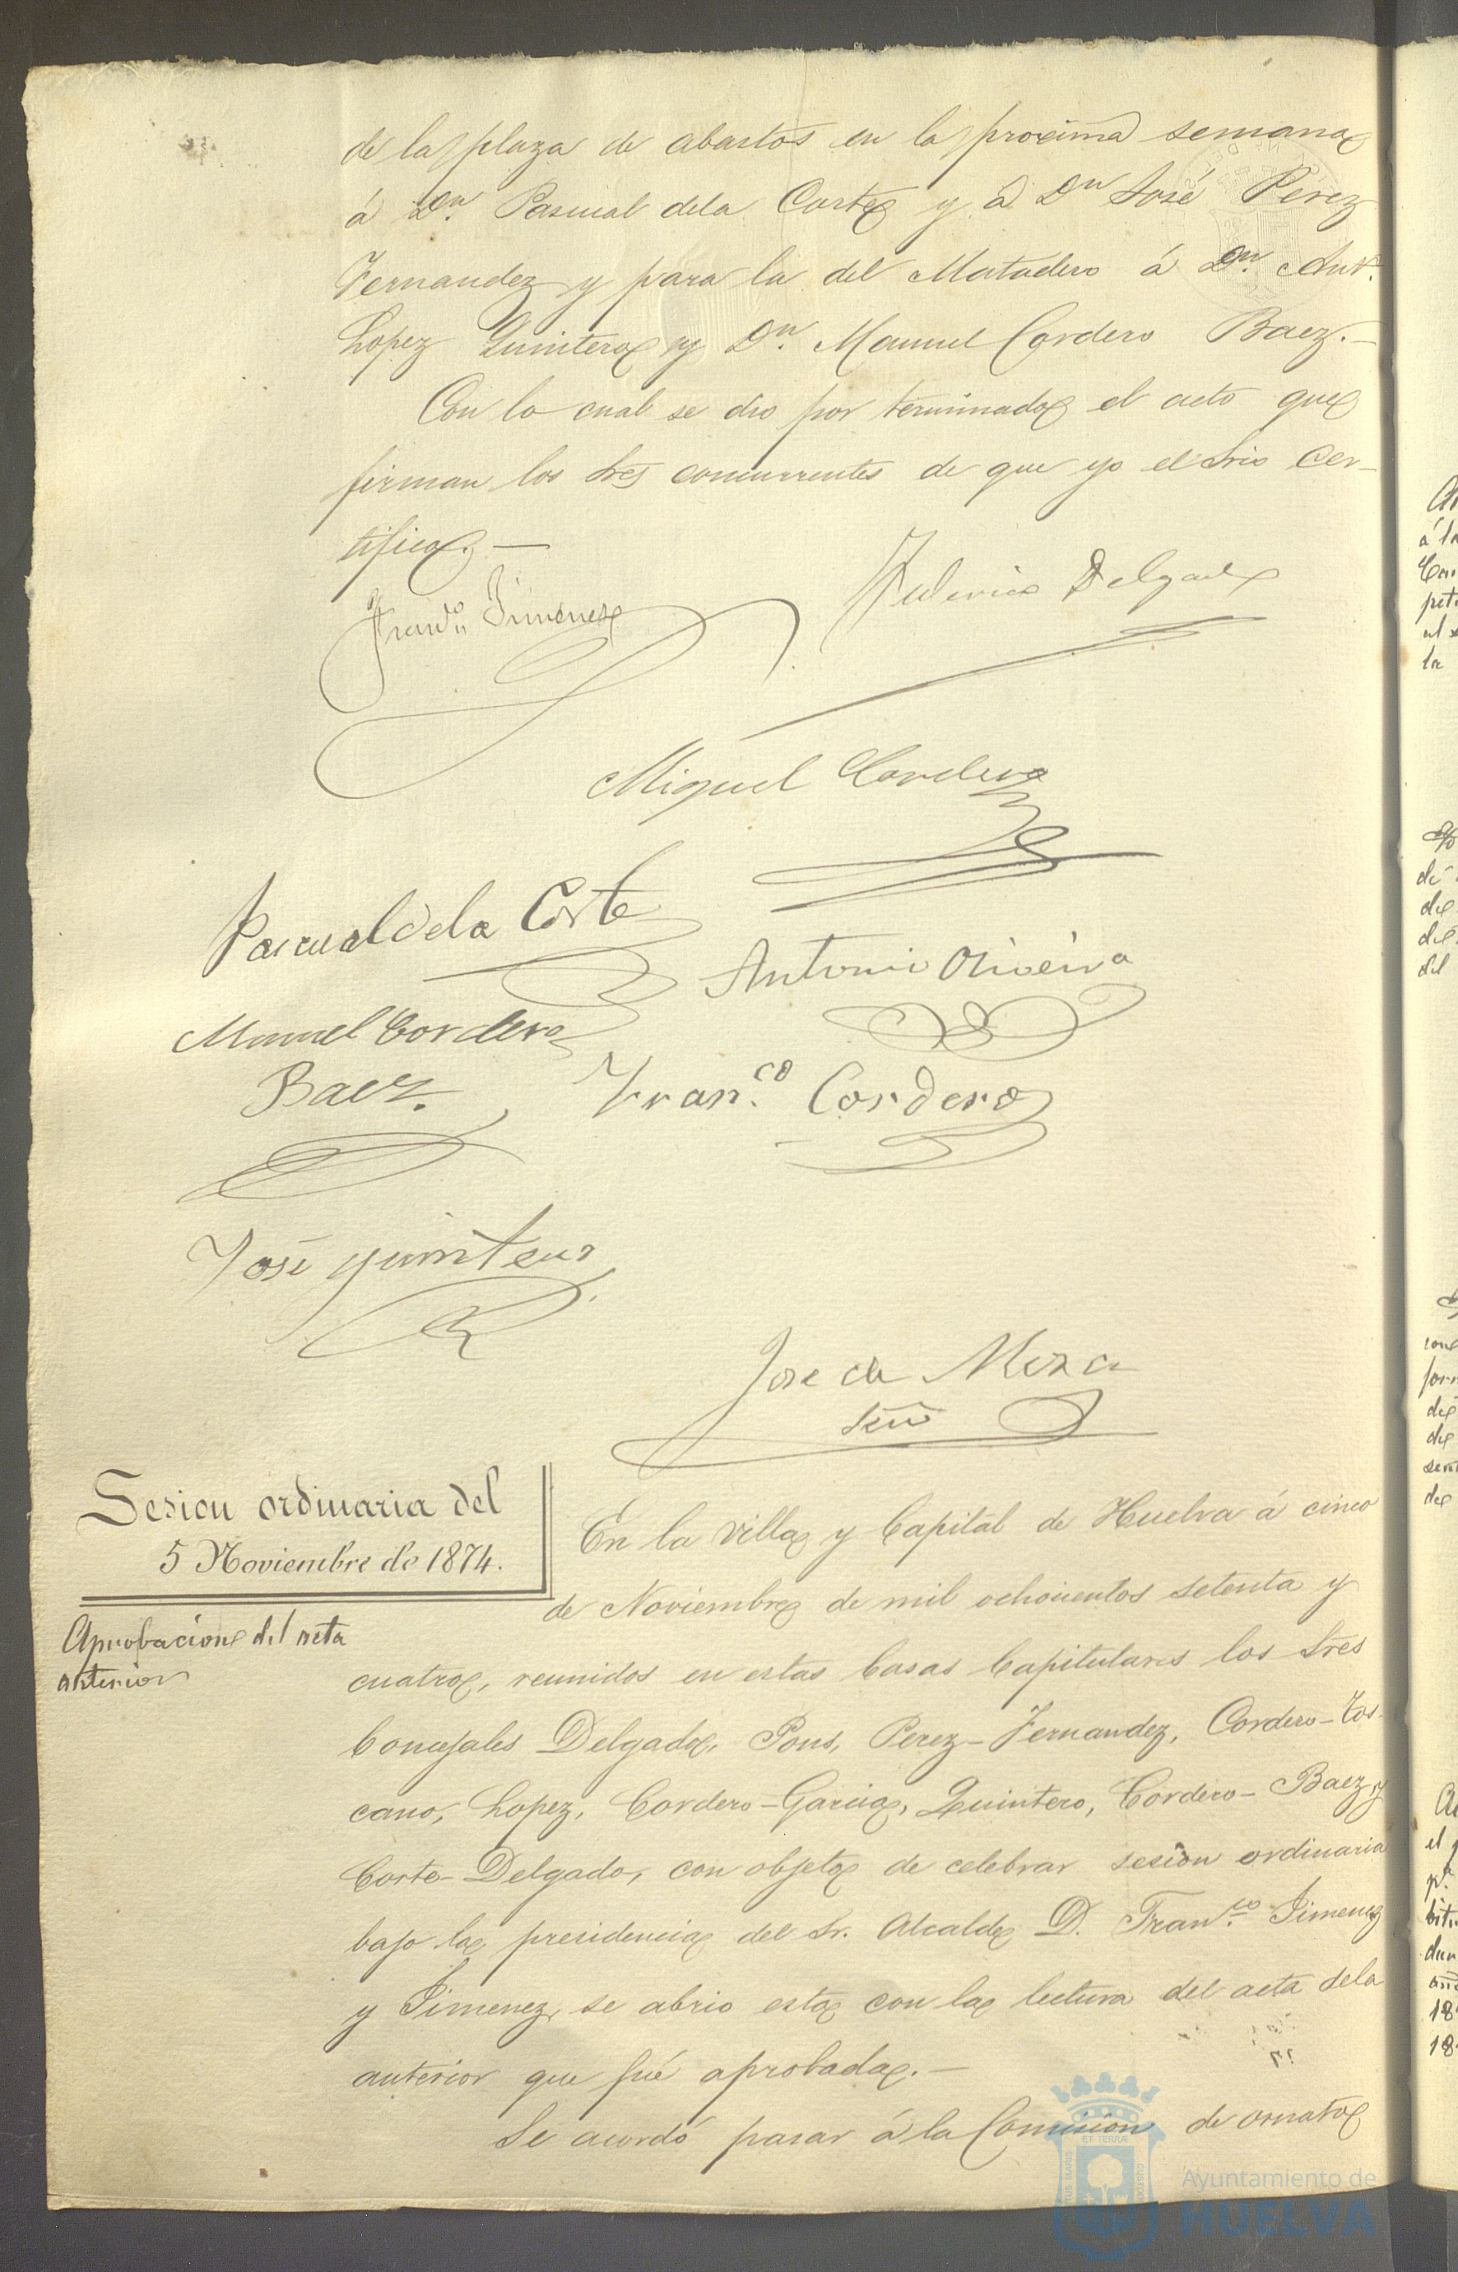 de la plaza de abastos en la proxima semana
á Dn. Pascual dela Corte y á Dn José Perez
Fernandez y para la del Matadero á Dn. Anto.
Lopez Quintero y Dn. Manuel Cordero Baez.—
Con lo cual se dio por terminado el acto que
firman los Sres concurrentes de que yo el Srio cer-
tifico. —
Franco. Jimenez
Federico Delgado
Miguel Cordero
Pascual de la Corte
Antonio Oliveira
Manuel Cordero
Baez.
Fran.co Cordero
José Quintero
Jose de Meza
Srio
Sesion ordinaria del
5 Noviembre de 1874.
Aprobacion del acta
anterior
En la villa y Capital de Huelva á cinco
de Noviembre de mil ochocientos setenta y
cuatro, reunidos en estas Casas Capitulares los Sres
Concejales Delgado, Pons, Perez-Fernandez, Cordero-Tos-
cano, Lopez, Cordero-Garcia, Quintero, Cordero-Baez y
Corte-Delgado, con objeto de celebrar sesion ordinaria
bajo la presidencia del Sr. Alcalde D. Fran.co Jimenez
y Jimenez, se abrio esta con la lectura del acta dela
anterior que fué aprobada.—
Se acordó pasar á la Comision de ornato
Ayuntamiento de
HUELVA